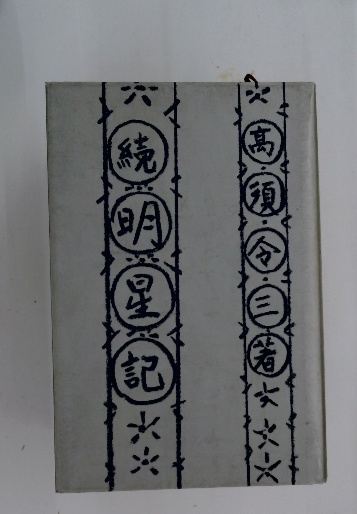 高須令三著
続明星記